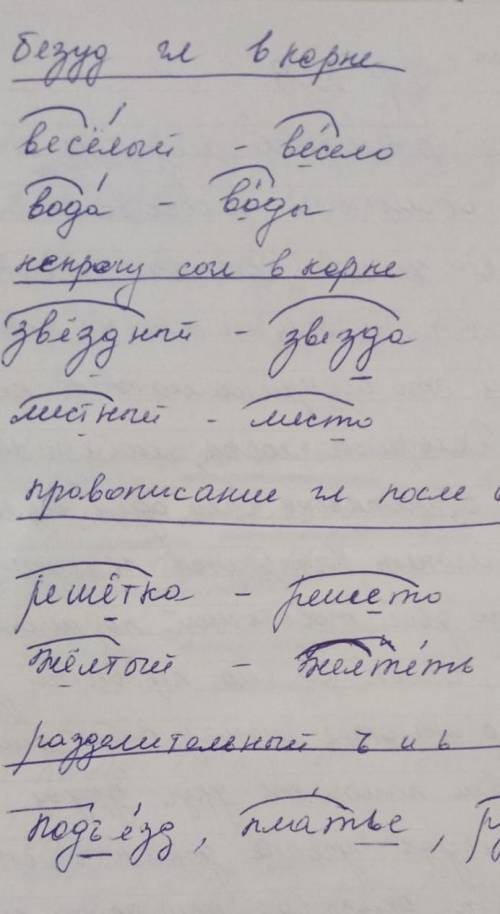 безуд гл в корне
весёлый - весело
вода - воды
непроизн согл в корне
звёздный - звезда
местный - место
правописание гл после
решётка - решето
жёлтый - желтеть
разделительный ъ и ь
подъезд, платье,